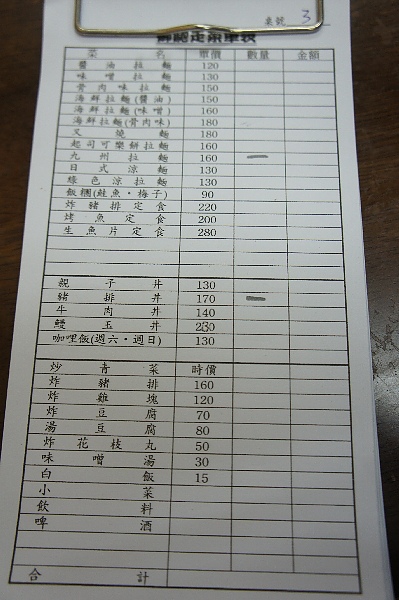 桌號 3
菜名 單價 數量 金額
醬油拉麵 120
味噌拉麵 130
骨肉味拉麵 150
海鮮拉麵(醬油) 150
海鮮拉麵(味噌) 160
海鮮拉麵(骨肉味) 180
叉燒麵 180
起司可樂餅拉麵 160
九州拉麵 160 一
日式涼麵 130
綠色涼拉麵 130
飯糰(鮭魚·梅子) 90
炸豬排定食 220
烤魚定食 200
生魚片定食 280
親子丼 130
豬排丼 170 一
牛肉丼 140
鰻玉丼 230
咖哩飯(週六·週日) 130
炒青菜 時價
炸豬排 160
炸雞塊 120
炸豆腐 70
湯豆腐 80
炸花枝丸 50
味噌湯 30
白飯 15
小菜
飲料
啤酒
合計